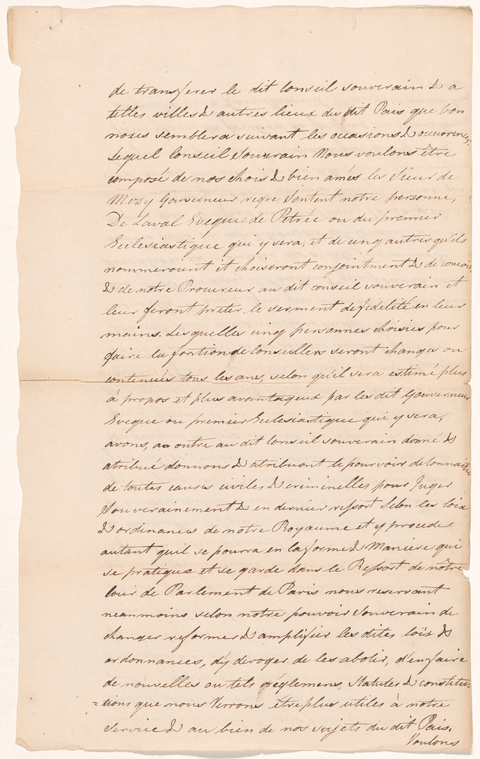 de transferer le dit Conseil souverain & a
telles villes & autres lieux du dit Pais que bon
nous semblera suivant les ocasions & occurrences,
Lequel Conseil Souverain Nous voulons être
composé de nos chers & bien amés les Sieur de
Mezy Gouverneur représentant notre personne,
De Laval Eveque de Petrée ou du premier
Ecclesiastique qui y sera, et de cinq autres qu'ils
nommeront et choisiront conjointment & de concert
& de notre Procureur au dit conseil souverain et
leur feront prêter le serment de fidelité en leur
mains. Lesquelles cinq personnes choisies pour
faire la fontion de Conseillers seront changés ou
continués tous les ans, selon qu'il sera estimé plus
à propos et plus avantageux par les dit Gouverneur
Eveque ou premier Ecclesiastique qui y sera,
avons, au outre au dit Conseil souverain donné &
atribué donnons & atribuont le pouvoir de connaitre
de toutes causes civiles & criminelles pour Juger
Souverainement & en dernier ressort selon les loix
& ordonances de notre Royaume et y proceder
autant qu'il se pourra en la forme & Maniere qui
se pratique et se garde dans le Ressort de notre
Cour de Parlement de Paris nous reservant
neanmoins selon notre pouvoir souverain de
changer reformer & amplifier les dites loix &
ordonnances, d'y deroger de les abolir, d'en faire
de nouvelles ou tels réglemens, Statutes & constitu=
=tions que nous Verrons être plus utiles à notre
Service & au bien de nos sujets du dit Pais.
Voulons